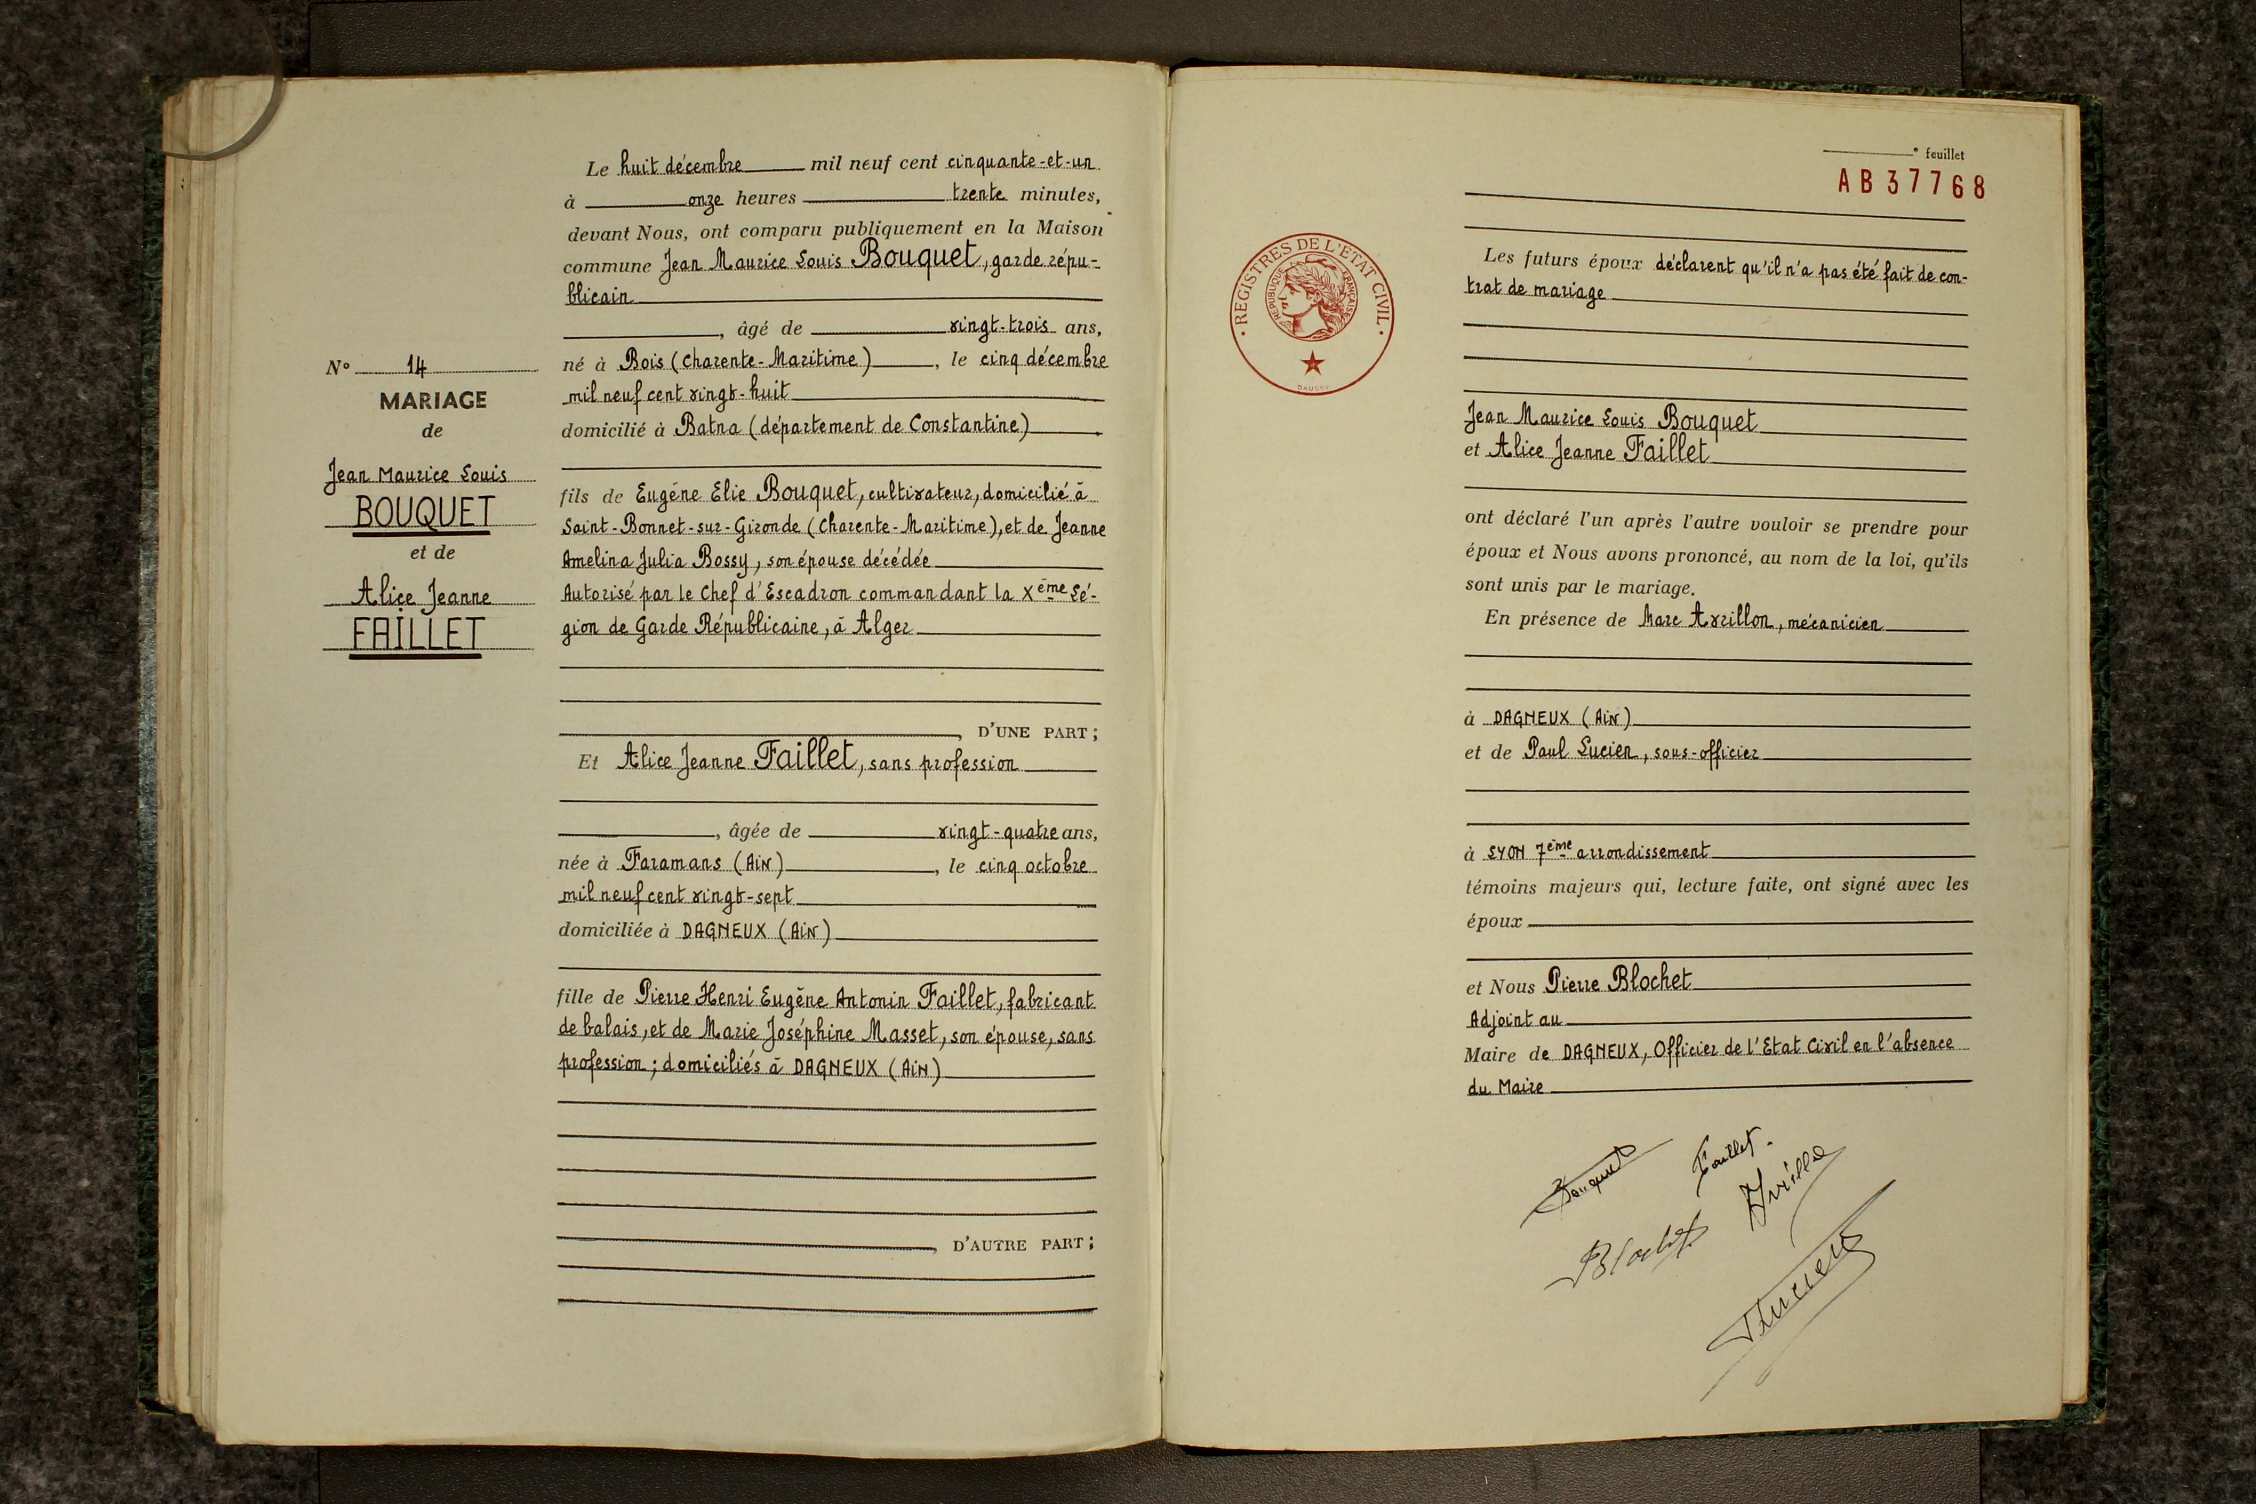 Le huit décembre mil neuf cent cinquante-et-un
à onze heures trente minutes,
devant Nous, ont comparu publiquement en la Maison
commune Jean Maurice Louis Bouquet, garde répu-
blicain
, âgé de vingt-trois ans,
né à Bois (Charente-Maritime), le cinq décembre
mil neuf cent vingt-huit
domicilié à Batna (département de Constantine)
fils de Eugène Elie Bouquet, cultivateur, domicilié à
Saint-Bonnet-sur-Gironde (Charente-Maritime), et de Jeanne
Amelina Julia Bossy, son épouse décédée
Autorisé par le Chef d'Escadron commandant la Xème Lé-
gion de Garde Républicaine, à Alger
D'UNE PART;
Et Alice Jeanne Faillet, sans profession
, âgée de vingt-quatre ans,
née à Faramans (Ain), le cinq octobre
mil neuf cent vingt-sept
domiciliée à DAGNEUX (Ain)
fille de Pierre Henri Eugène Antonin Faillet, fabricant
de balais, et de Marie Joséphine Masset, son épouse, sans
profession; domiciliés à DAGNEUX (Ain)
, D'AUTRE PART;
N° 14
MARIAGE
de
Jean Maurice Louis
BOUQUET
et de
Alice Jeanne
FAILLET
e feuillet
AB37768
REGISTRES DE L'ÉTAT CIVIL
RÉPUBLIQUE FRANÇAISE
Les futurs époux déclarent qu'il n'a pas été fait de con-
trat de mariage
Jean Maurice Louis Bouquet
et Alice Jeanne Faillet
ont déclaré l'un après l'autre vouloir se prendre pour
époux et Nous avons prononcé, au nom de la loi, qu'ils
sont unis par le mariage.
En présence de Marc Avrillon, mécanicien
à DAGNEUX (Ain)
et de Paul Lucien, sous-officier
à LYON 7ème arrondissement
témoins majeurs qui, lecture faite, ont signé avec les
époux
et Nous Pierre Blochet
Adjoint au
Maire de DAGNEUX, Officier de l'Etat Civil en l'absence
du Maire
Bouquet
Faillet
Blochet
Lucien